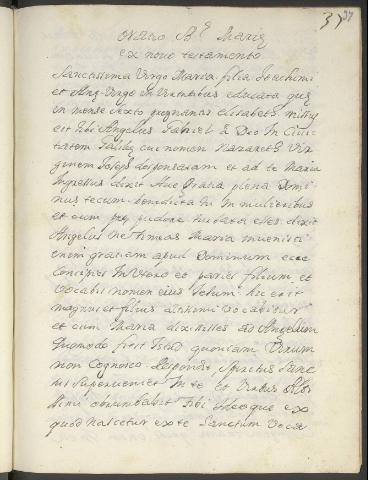 37 37
Oratio B.ᵉ Mariæ
ex novo testamento
Sanctissima Virgo Maria filia Joachimi
et Ang Virgo in Virtutibus educata quæ
in mense sexto pregnantis Elisabeth missus
est tibi Angelus Gabriel a Deo in Civi
tatem Galileæ cui nomen Nazareth Vir
ginem Joseph desponsatam et ad te Maria
Ingressus dixit Ave Gratia plena Domi
nus tecum benedicta tu in mulieribus
et cum præ pudore turbata esses dixit
Angelus Ne timeas Maria invenisti
enim gratiam apud Dominum ecce
concipies in Utero et paries filium et
vocabis nomen eius Jesum hic erit
magnus et filius altissimi vocabitur
et cum Maria dixisses ad Angelum
Quomodo fiet istud quoniam Virum
non Cognosco Respondit Spiritus Sanc
tus superveniet in te et Virtus Alti
simi obumbabit tibi ideoque ex
quod nascetur ex te Sanctum voca